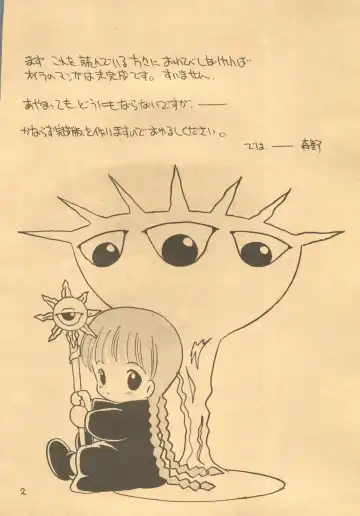 まず これを読んでいる方々に おわびしなければ
オイラのマンガは未完成です。すいません.
あやまっても どうにもならないですが. ——
かならず完成版を作りますいでおゆるしください。
では —— 春野
2